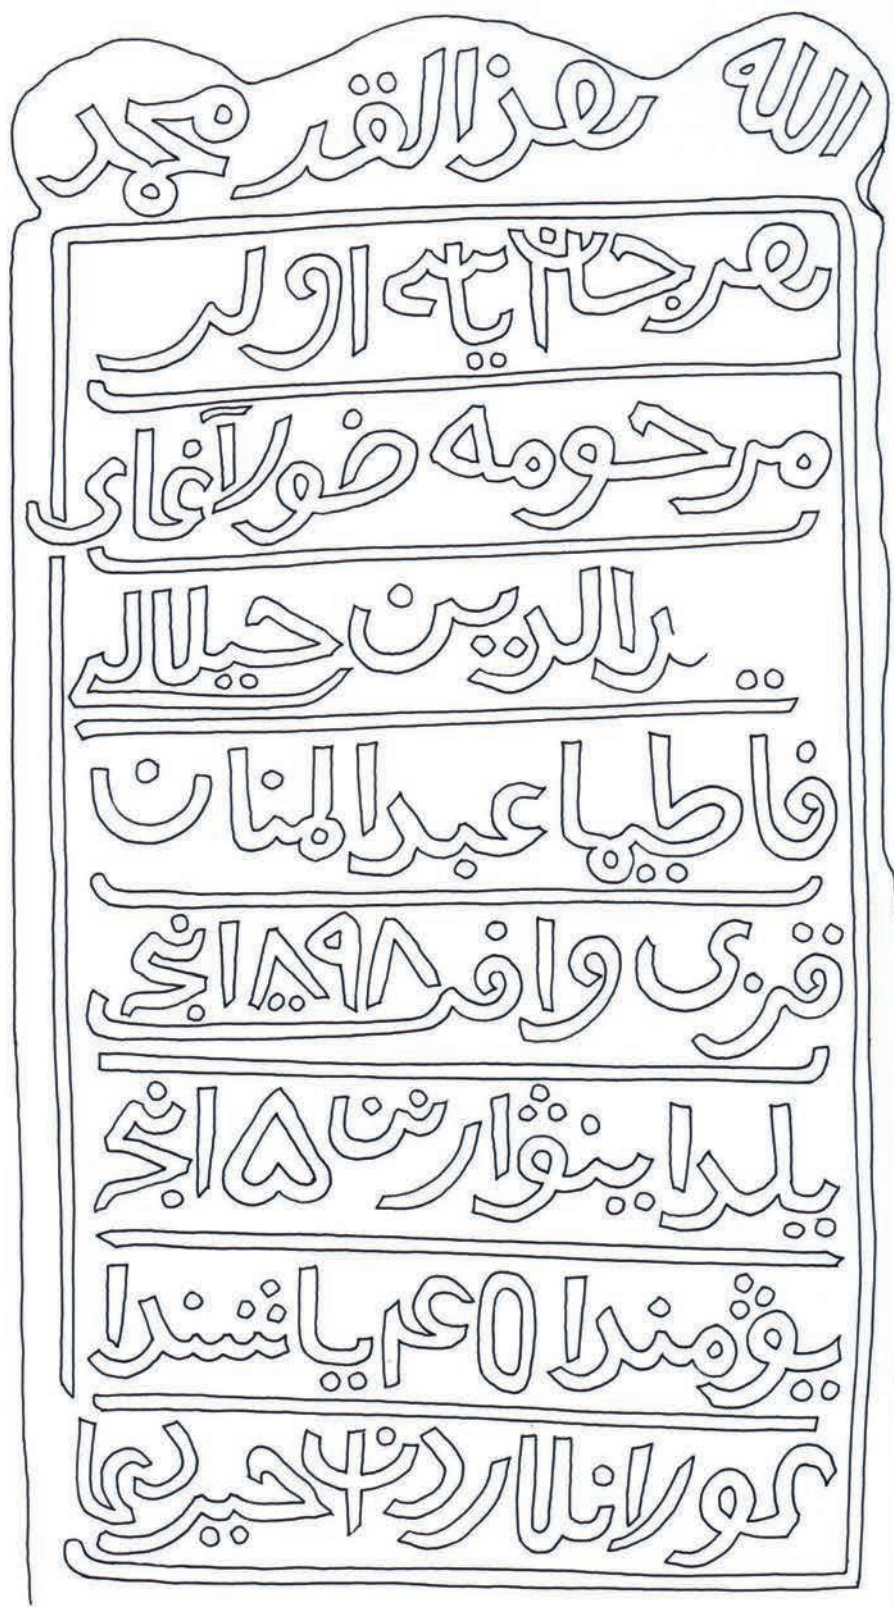 الله هزالقبر محمد
هر جان اولر
مرحومه آغاى
الدين جيلالى
فاطيما عبدالمنان
قزى وافد ۱۸۹۸ انجى
يلدا ينۋارنن ۵ انجى
يۋمندا ۴۵ ياشندا
كورانلاردن خير دعا